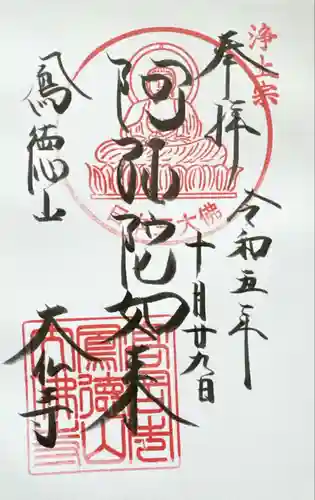 浄土宗
奉拝
令和五年
十月廿九日
阿弥陀如来
大佛
鳳徳山
大仏寺